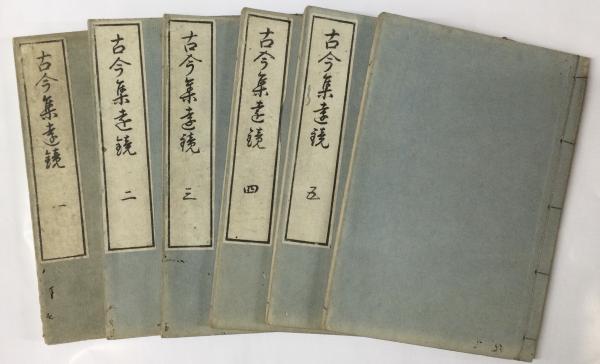 古今集遠鏡 一
古今集遠鏡 二
古今集遠鏡 三
古今集遠鏡 四
古今集遠鏡 五